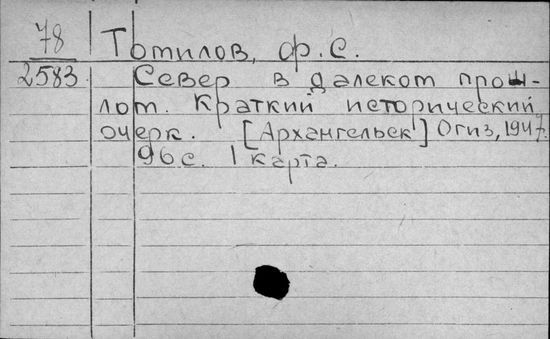 78
2583
Томилов, Ф.С.
Север в далеком прош-
лом. Краткий исторический
очерк. [Архангельск] Огиз, 1947.
96 с. 1 карта.